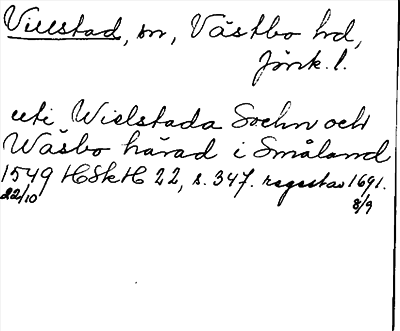 Villstad, sn, Västbo hd,
Jönk. l.
uti Wielstada Sochn och
Wäsbo härad i Småland
1549 HSkH 22, s. 347. regestav 1691.
22/10 8/9